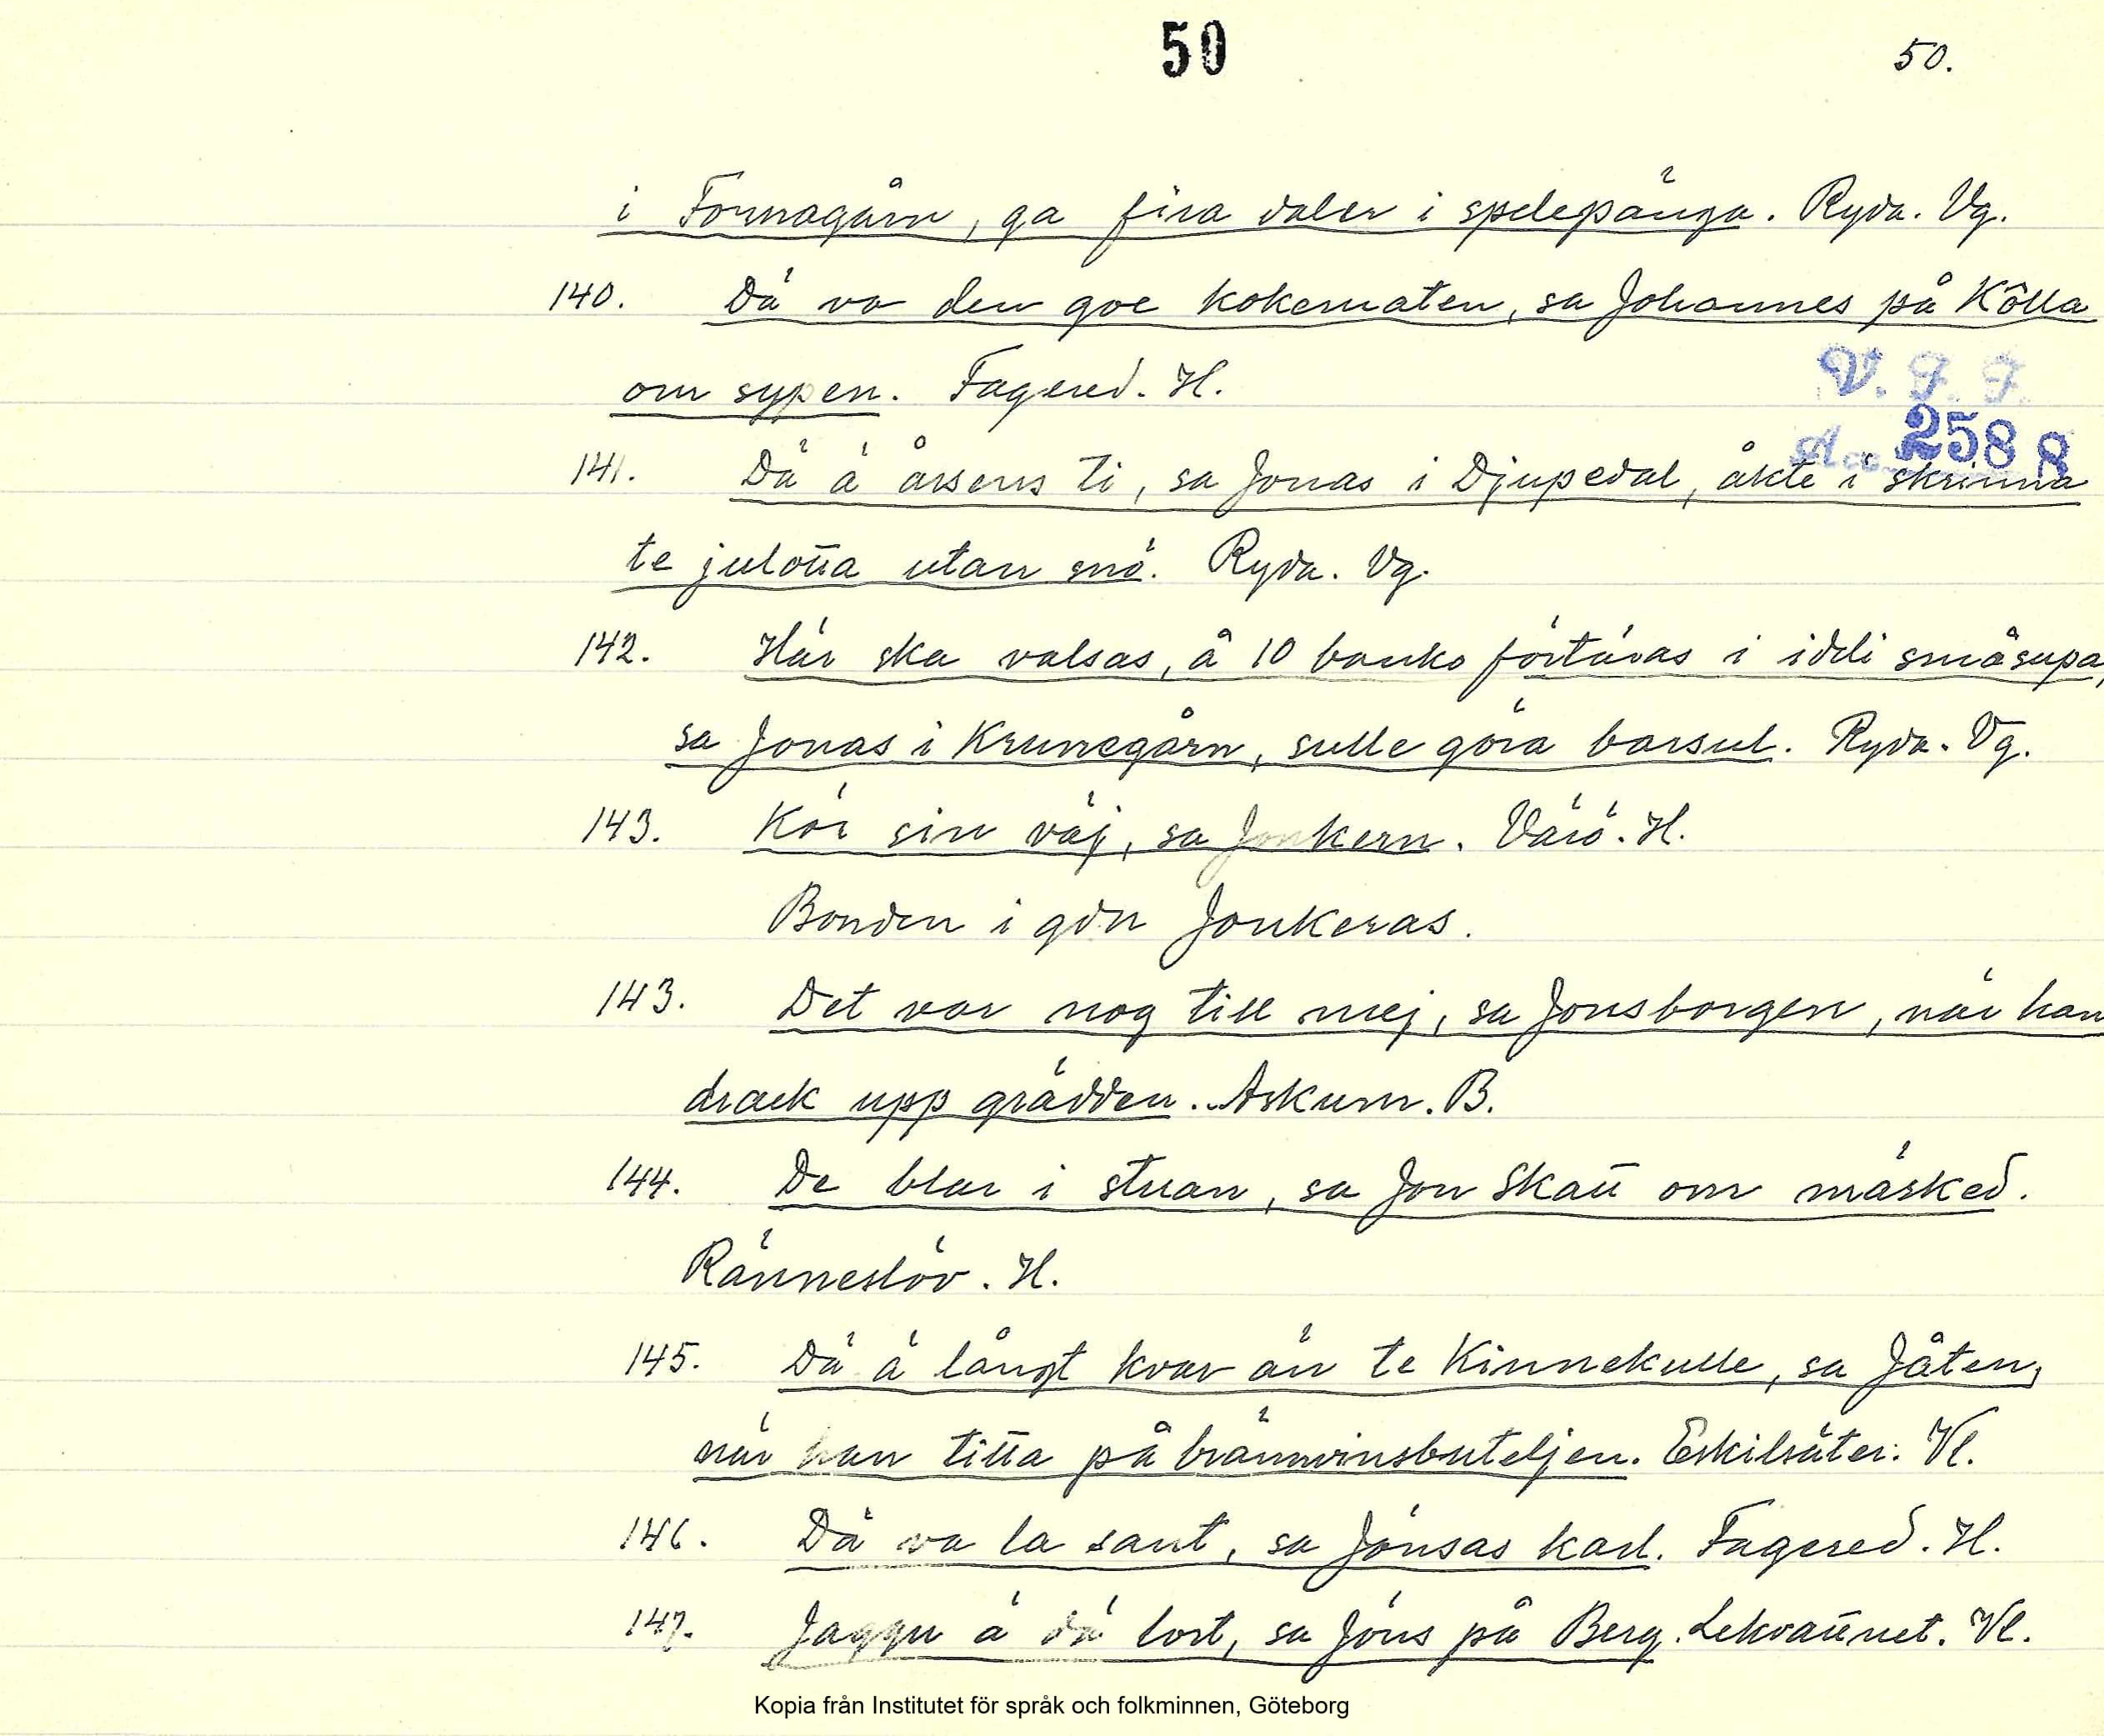 50 50.
i Fornagårn, ga fira daler i spelepänga. Ryda. Vg.
140. Dä va den goe kokematen, sa Johannes på Kölla
om sypen. Fagered. H.
V. F. F.
Acc. 2588
141. Dä ä årsens ti, sa Jonas i Djupedal, åkte i skrinna
te julotta utan snö. Ryda. Vg.
142. Här ska valsas, å 10 banko förtäras i idli småsupa,
sa Jonas i Krunegårn, sulle göra barsul. Ryda. Vg.
143. Kör sin väj, sa Jonkern. Värö. H.
Bonden i gdn Jonkeras.
143. Det var nog till mej, sa Jonsborgen, när han
drack upp grädden. Askum. B.
144. De blar i stuan, sa Jon Skatt om mäsked.
Ränneslöv. H.
145. Dä ä långt kvar än te Kinnekulle, sa Jåten,
när han titta på brännvinsbuteljen. Eskilsäter. Vl.
146. Dä va la sant, sa Jönsas karl. Fagered. H.
147. Jaggu ä dä lort, sa Jöns på Berg. Lekvattnet. Vl.
Kopia från Institutet för språk och folkminnen, Göteborg